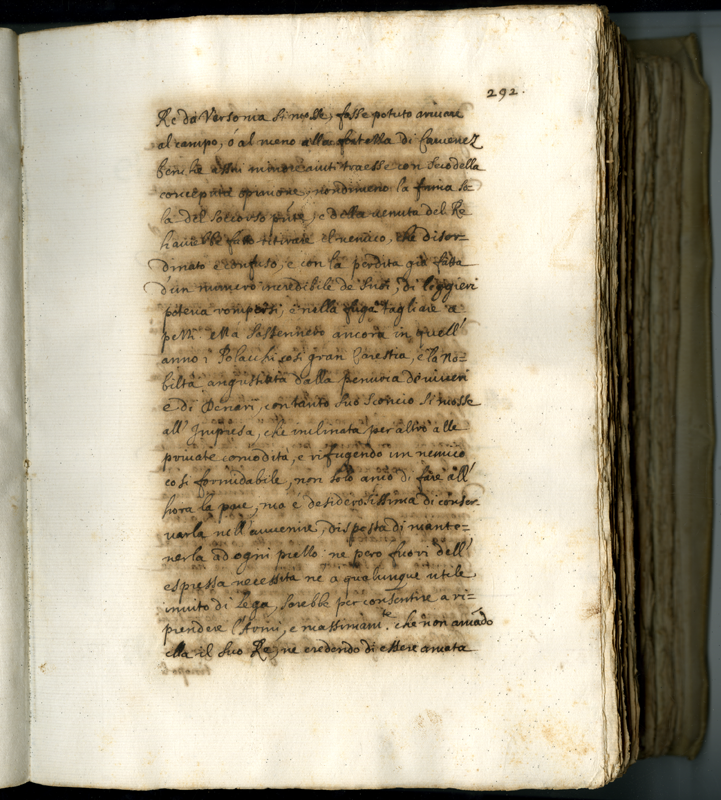 292.
Re da Versonia si mosse, fosse potuto arrivare
al campo, ó al meno alla fortezza di Camenez
benche assai minore aiuti traesse con seco della
concepita opinione, nondimeno la fama so=
la del soccorso, e della venuta del Re
haverebbe fatto ritirare el nemico, che disor=
dinato e confuso, e con la perdita già fatta
d'un numero incredibile de Suoi, di leggieri
poteva rompersi, e nella fuga tagliare a
pezzi. Ma sostenendo ancora in quell'
anno i Polacchi così gran Carestia, e la No=
biltà angustiata dalla penuria de viveri
e di Denari, con tanto suo sconcio si mosse
all' Impresa, che inclinata per altro alle
private comodità, e rifugendo un nemico
così formidabile, non solo amò di fare all'
hora la pace, ma è desiderosissima di conser=
varla nell'avvenire, disposta di mante=
nerla ad ogni prezzo ne pero fuori dell'
espressa necessita ne a qualunque utile
invito di Lega, sarebbe per consentire a ri=
prendere l'Armi, e massimam.te che non amādo
ella il suo Re, ne credendo di essere amata